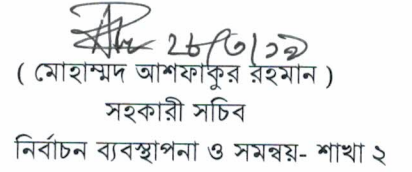 ২৮/৩/১৯
( মোহাম্মদ আশফাকুর রহমান )
সহকারী সচিব
নির্বাচন ব্যবস্থাপনা ও সমন্বয়- শাখা ২